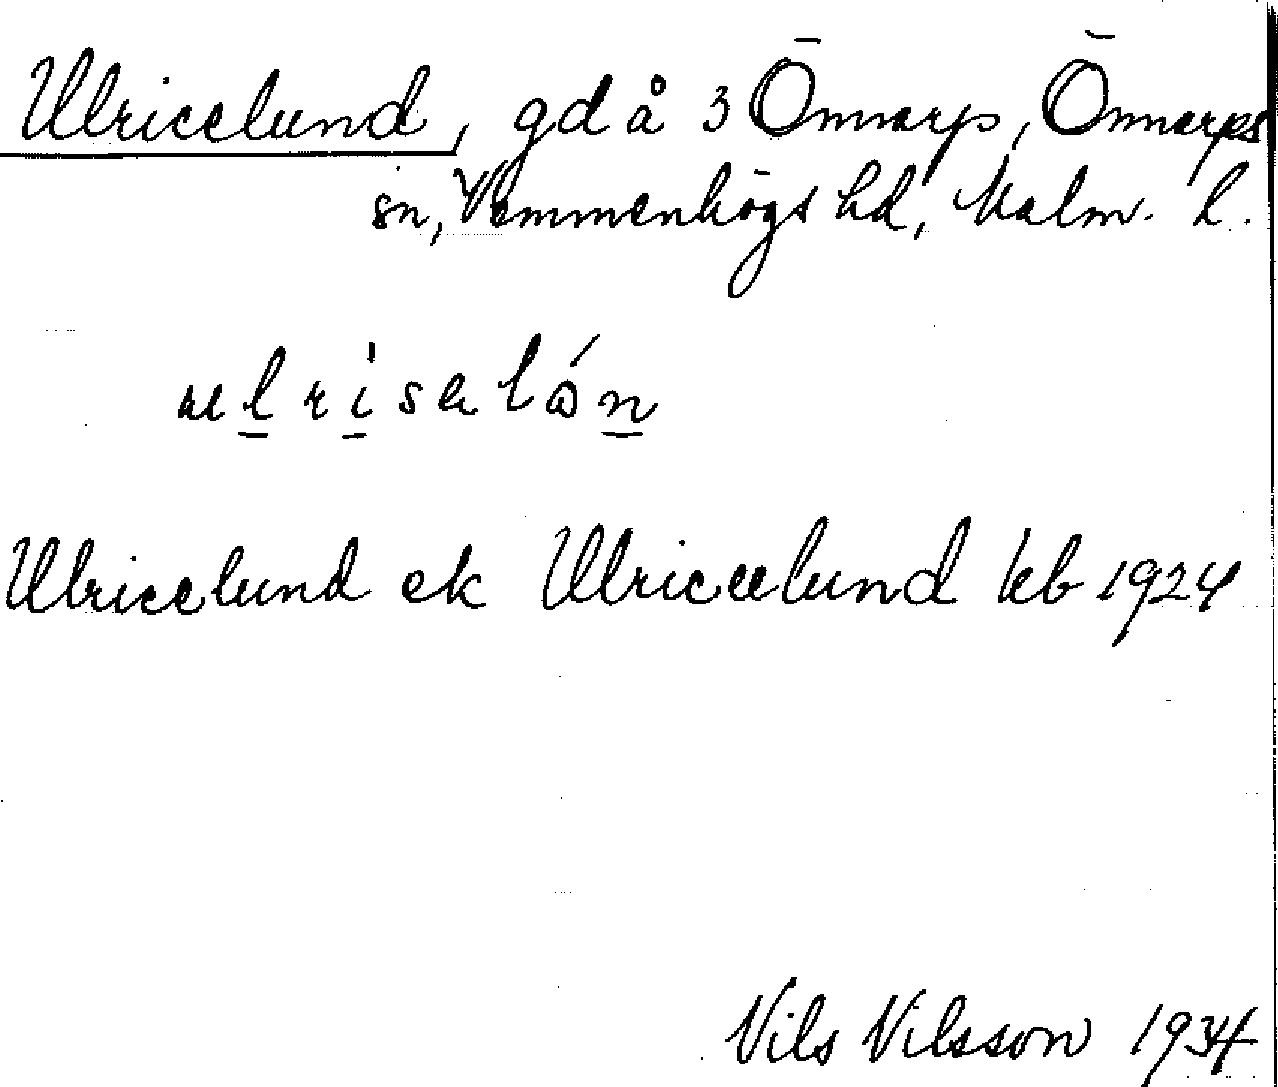 Ulricelund, gd å 3 Önnarp, Önnarps
sn, Vemmenhögs hd, Malm. l.
Ulricelund ek Ulricælund kb 1924
Nils Nilsson 1934